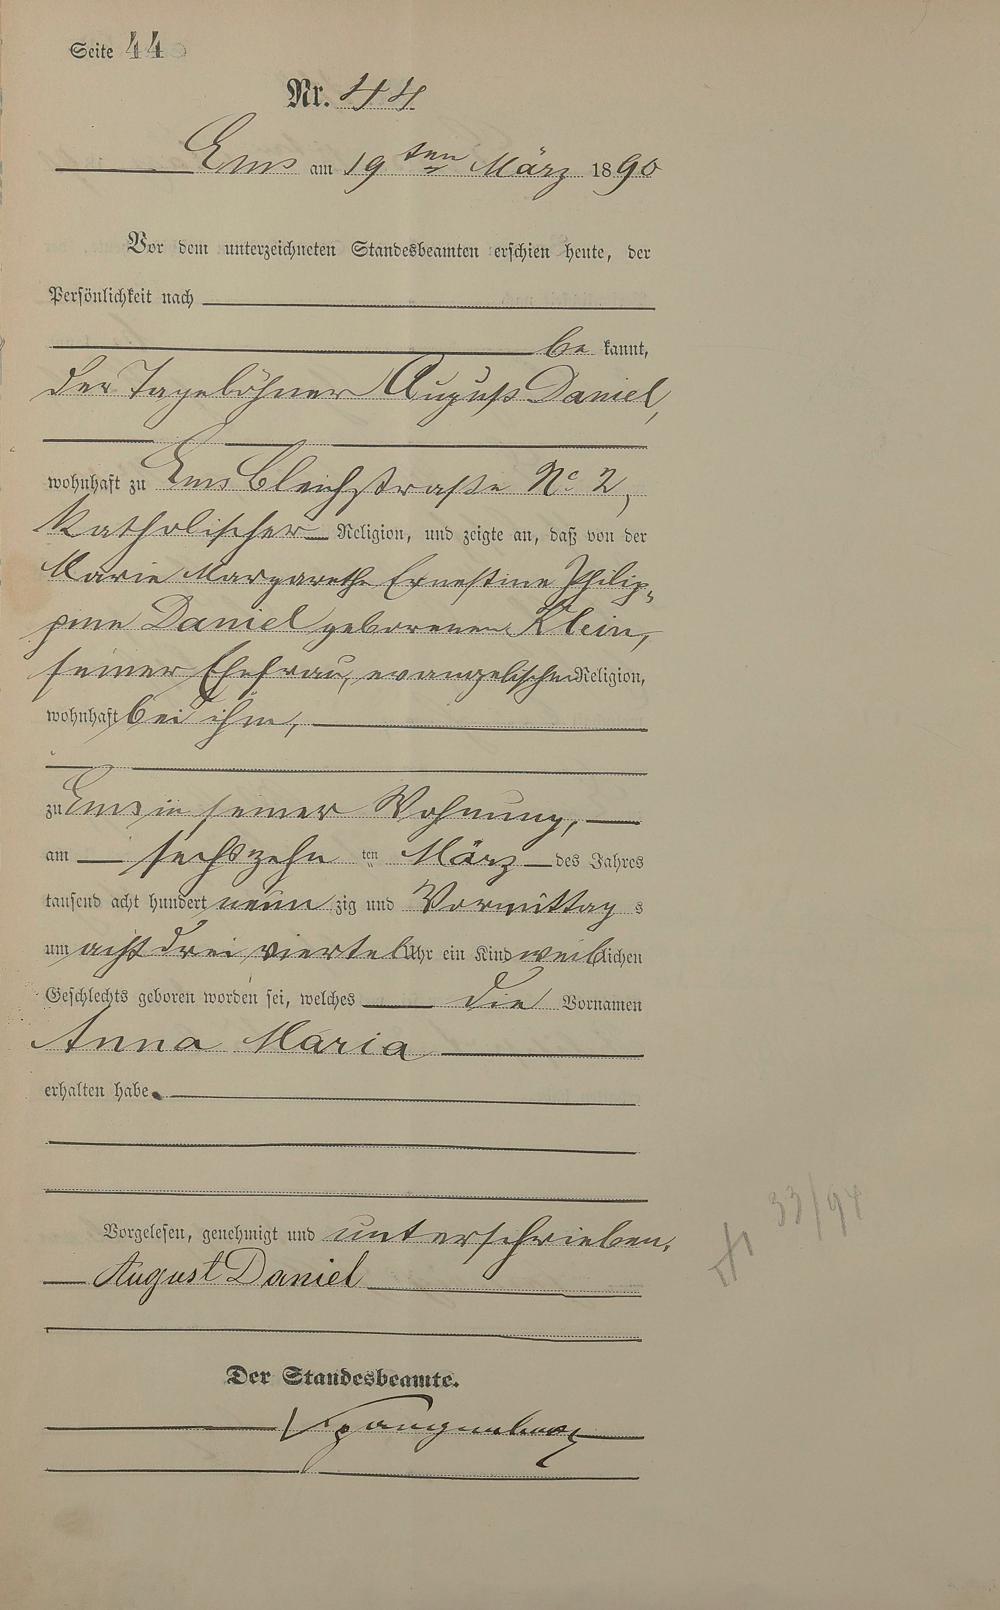 Seite 44
Nr. 44
Ems am 19ten März 1890
Vor dem unterzeichneten Standesbeamten erschien heute, der
Persönlichkeit nach
be kannt,
der Tagelöhner August Daniel,
wohnhaft zu Ems Bleichstraße No 2,
katholischer Religion, und zeigte an, daß von der
Marie Margarethe Ernestine Philip-
pine Daniel geborenen Klein,
seiner Ehefrau, evangelischer Religion,
wohnhaft bei ihm,
zu Ems in seiner Wohnung,
am sechszehn ten März des Jahres
tausend acht hundert neun zig und Vormittag s
um acht drei viertel Uhr ein Kind weiblichen
Geschlechts geboren worden sei, welches die Vornamen
Anna Maria
erhalten habe.
Vorgelesen, genehmigt und unterschrieben.
August Daniel
Der Standesbeamte.
33/94